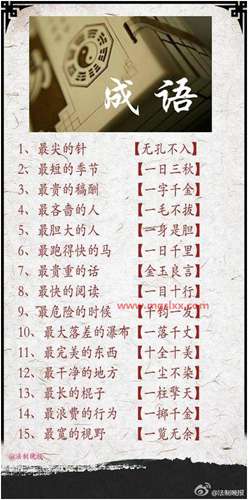 成语
1、最尖的针 【无孔不入】
2、最短的季节 【一日三秋】
3、最贵的稿酬 【一字千金】
4、最吝啬的人 【一毛不拔】
5、最胆大的人 【一身是胆】
6、最跑得快的马 【一日千里】
7、最贵重的话 【金玉良言】
8、最快的阅读 【一目十行】
www.mgslxx.com
9、最危险的时候 【千钧一发】
10、最大落差的瀑布 【一落千丈】
11、最完美的东西 【十全十美】
12、最干净的地方 【一尘不染】
13、最长的棍子 【一柱擎天】
14、最浪费的行为 【一掷千金】
15、最宽的视野 【一览无余】
@法制晚报
@法制晚报